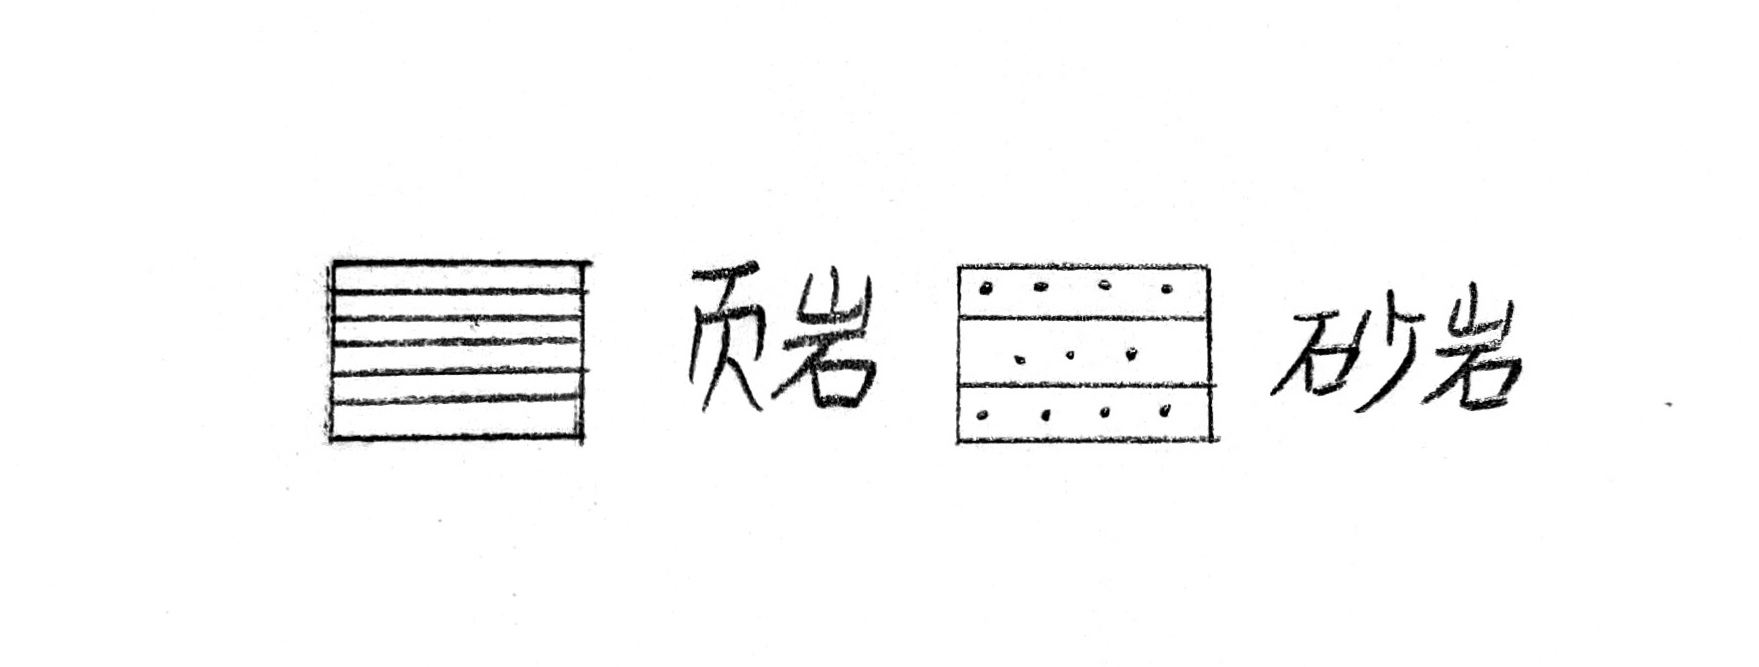 页岩 砂岩